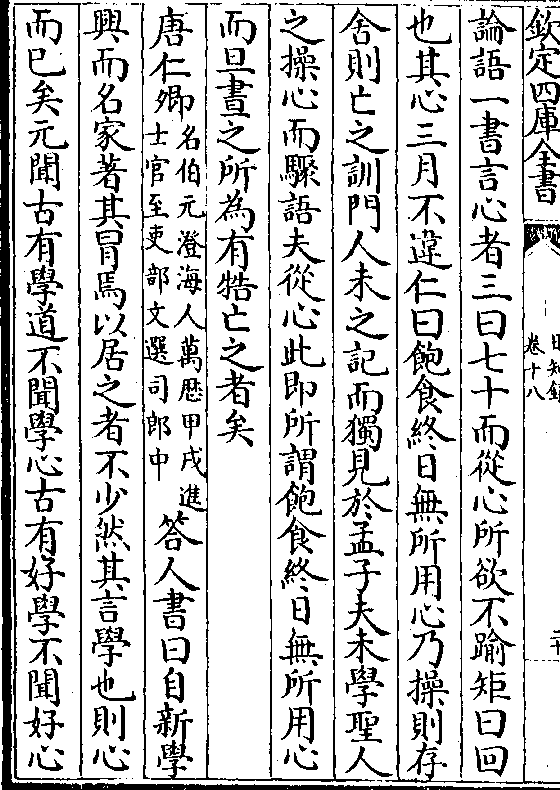 欽定四庫全書
日知錄
卷十八
論語一書言心者三曰七十而從心所欲不踰矩曰回
也其心三月不違仁曰飽食終日無所用心乃操則存
舍則亡之訓門人未之記而獨見於孟子夫未學聖人
之操心而驟語夫從心此即所謂飽食終日無所用心
而旦晝之所為有牿亡之者矣
唐仁卿名伯元澄海人萬厯甲戌進士官至吏部文選司郎中答人書曰自新學
興而名家著其冐焉以居之者不少然其言學也則心
而已矣元聞古有學道不聞學心古有好學不聞好心